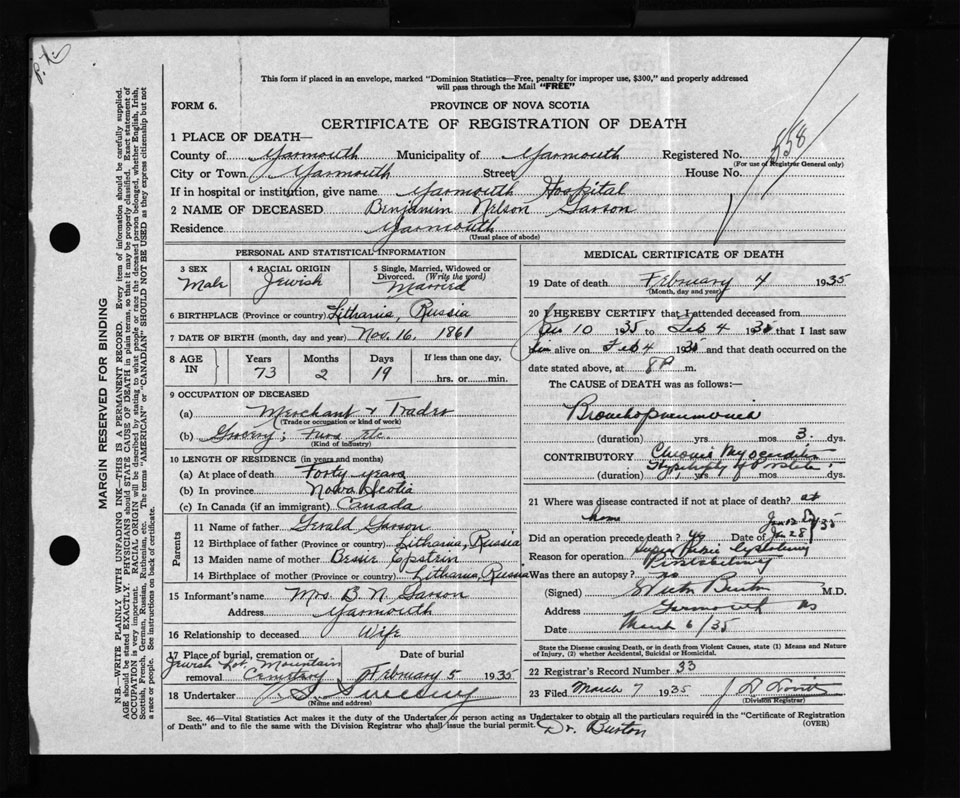 P. X.
This form if placed in an envelope, marked "Dominion Statistics—Free, penalty for improper use, $300," and properly addressed
will pass through the Mail "FREE"
FORM 6.
PROVINCE OF NOVA SCOTIA
CERTIFICATE OF REGISTRATION OF DEATH
1 PLACE OF DEATH—
County of Yarmouth Municipality of Yarmouth Registered No. 558
(For use of Registrar General only)
City or Town Yarmouth Street House No.
If in hospital or institution, give name Yarmouth Hospital
2 NAME OF DECEASED Benjamin Nelson Garson
Residence Yarmouth
(Usual place of abode)
PERSONAL AND STATISTICAL INFORMATION
3 SEX
Male
4 RACIAL ORIGIN
Jewish
5 Single, Married, Widowed or
Divorced. (Write the word)
Married
6 BIRTHPLACE (Province or country) Lithania, Russia
7 DATE OF BIRTH (month, day and year) Nov. 16, 1861
8 AGE
IN
Years
73
Months
2
Days
19
If less than one day,
hrs. or min.
9 OCCUPATION OF DECEASED
(a) Merchant & Trader
(Trade or occupation or kind of work)
(b) Grocery; Furs etc.
(Kind of industry)
10 LENGTH OF RESIDENCE (in years and months)
(a) At place of death Forty years
(b) In province Nova Scotia
(c) In Canada (if an immigrant) Canada
Parents
11 Name of father Gerald Garson
12 Birthplace of father (Province or country) Lithania, Russia
13 Maiden name of mother Bessie Epstein
14 Birthplace of mother (Province or country) Lithania, Russia
15 Informant's name Mrs. B. N. Garson
Address Yarmouth
16 Relationship to deceased Wife
17 Place of burial, cremation or
removal
Jewish Lot, Mountain
Cemetery
Date of burial
February 5 1935
18 Undertaker Sweeny
(Name and address)
MEDICAL CERTIFICATE OF DEATH
19 Date of death February 4 1935
(Month, day and year)
20 I HEREBY CERTIFY that I attended deceased from
Jan 10 1935 to Feb 4 1935 that I last saw
him alive on Feb 4 1935 and that death occurred on the
date stated above, at 8 P m.
The CAUSE of DEATH was as follows:
Bronchopneumonia
(duration) yrs. mos 3. dys.
CONTRIBUTORY Chronic Myocarditis
Hypertrophy of Prostate
(duration) yrs. mos. dys.
21 Where was disease contracted if not at place of death? at
home
Did an operation precede death? yes Date of Jan 28/35
Reason for operation Supra Pubic Cystotomy
Prostatectomy
Was there an autopsy? no
(Signed) Burton M.D.
Address Yarmouth NS
Date March 6/35
State the Disease causing Death, or in death from Violent Causes, state (1) Means and Nature
of Injury, (2) whether Accidental, Suicidal or Homicidal.
22 Registrar's Record Number 33
23 Filed March 7 1935
(Division Registrar)
Sec. 46—Vital Statistics Act makes it the duty of the Undertaker or person acting as Undertaker to obtain all the particulars required in the "Certificate of Registration
of Death" and to file the same with the Division Registrar who shall issue the burial permit.
(OVER)
Dr. Burton
MARGIN RESERVED FOR BINDING
N.B.—WRITE PLAINLY WITH UNFADING INK—THIS IS A PERMANENT RECORD. Every item of information should be carefully supplied.
AGE should be stated EXACTLY. PHYSICIANS should STATE CAUSE OF DEATH in plain terms, so that it may be properly classified. Exact statement of
OCCUPATION is very important. RACIAL ORIGIN will be described by stating to what people or race the deceased person belonged, whether English, Irish,
Scottish, French, German, Russian, Ruthenian, etc. The terms "AMERICAN" or "CANADIAN" SHOULD NOT BE USED as they express citizenship but not
a race or people. See instructions on back of certificate.